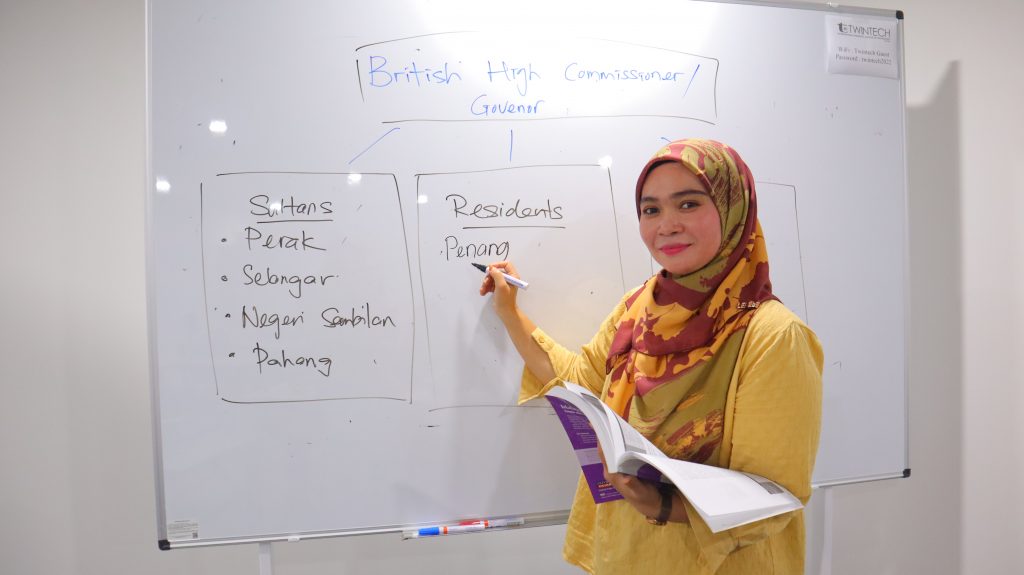 TWINTECH
Wifi : Twintech Guest
Password : twintech2022
British High Commissioner/
Govenor
Sultans
• Perak
• Selangar
• Negeri Sambilan
• Pahang
Residents
. Penang